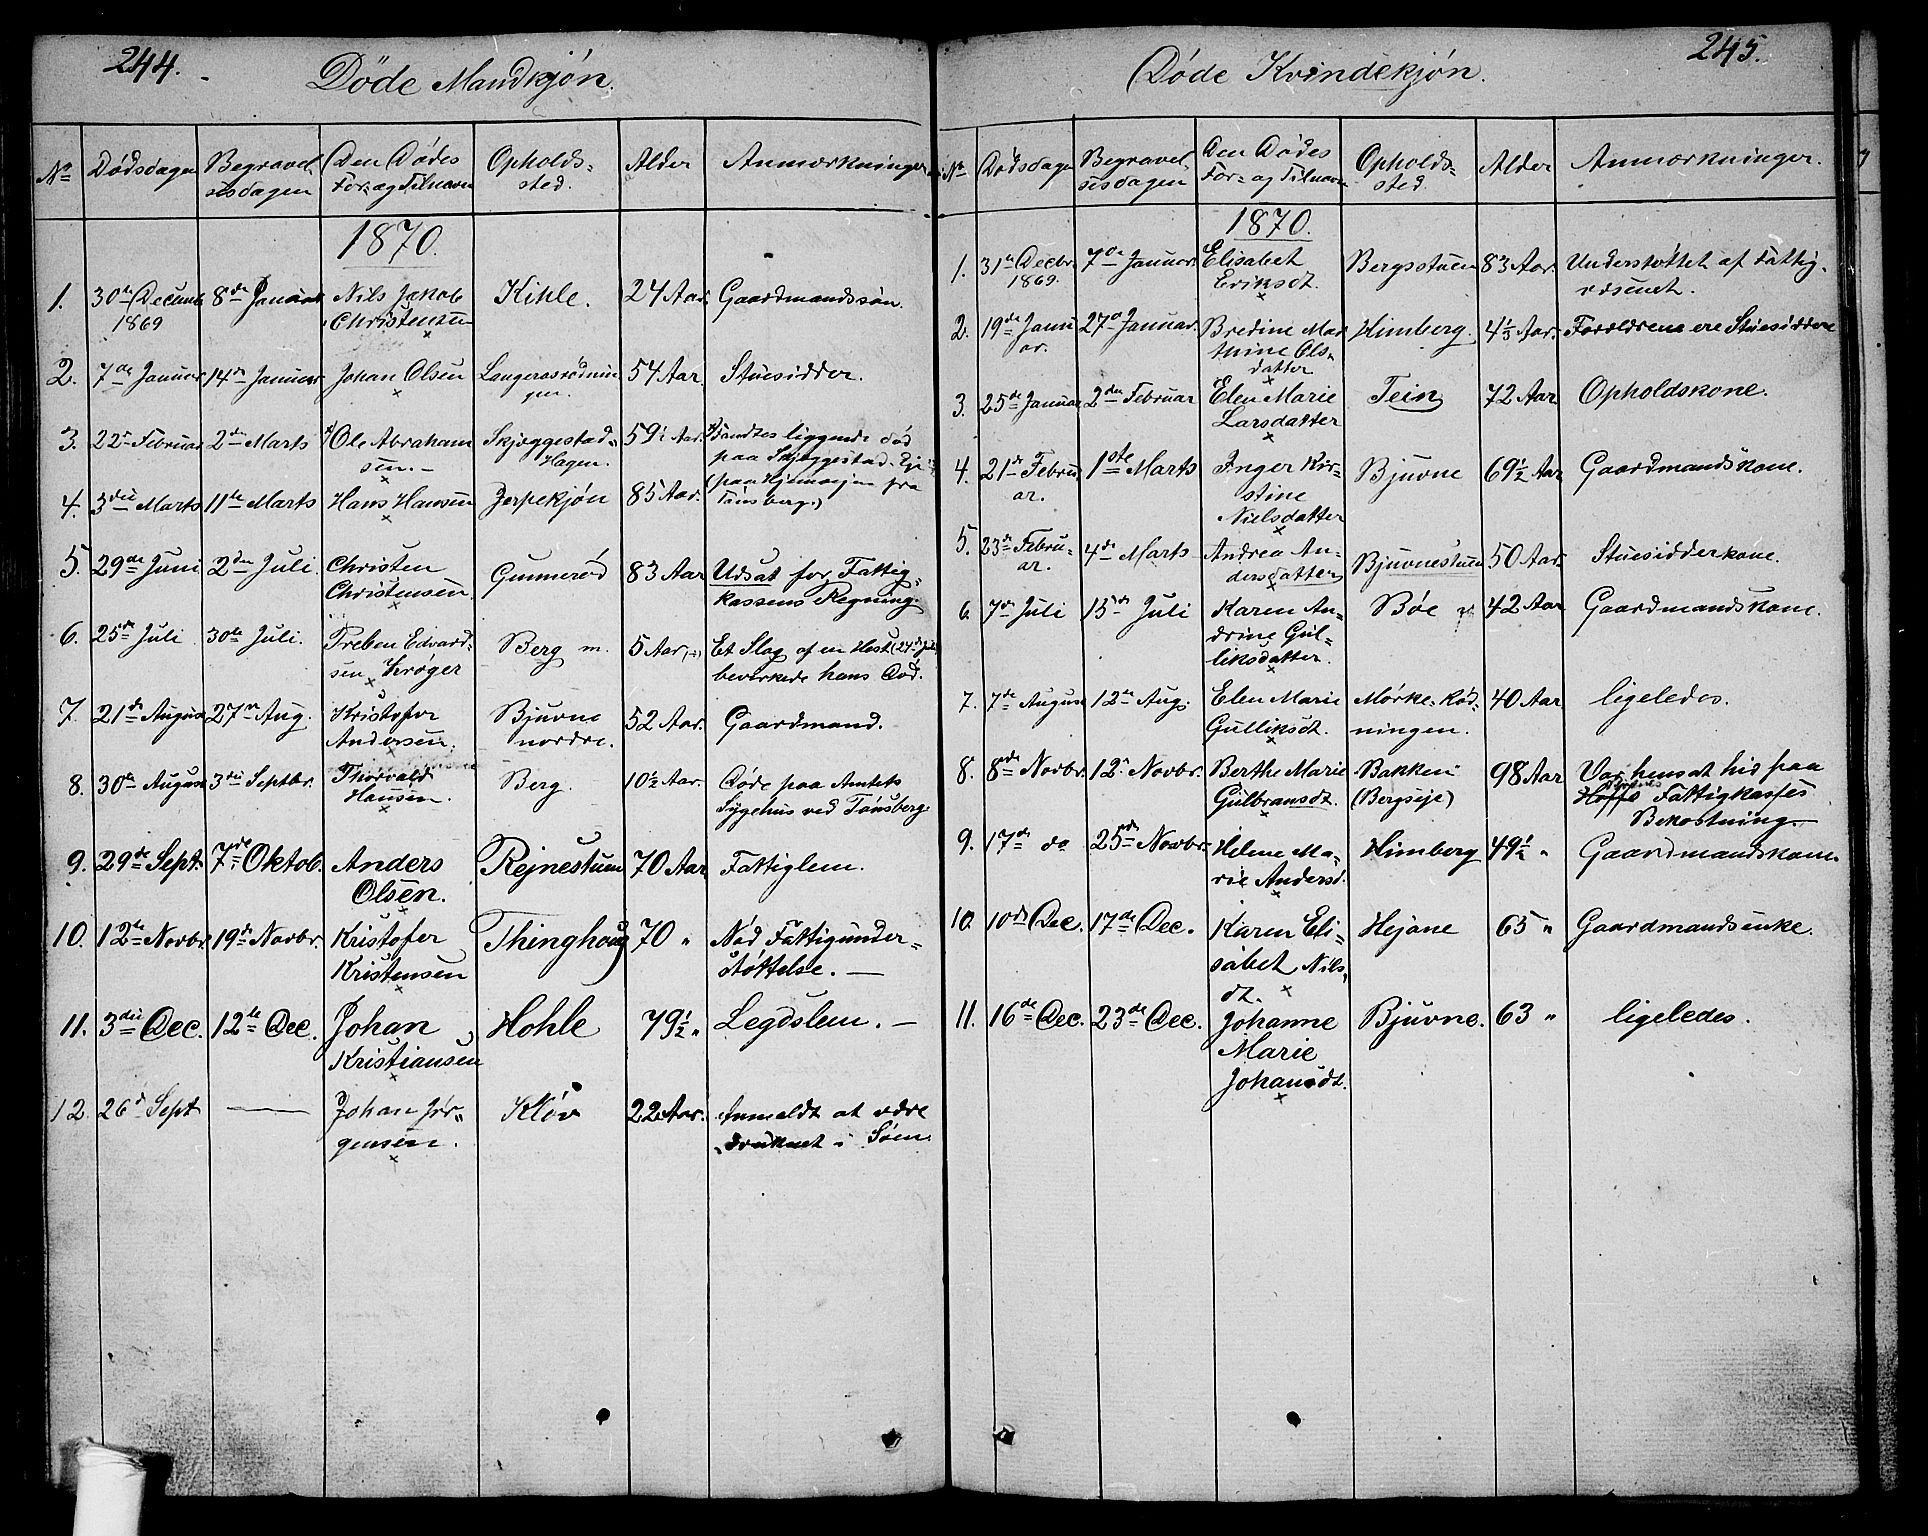 244.
Døde Mandkjøn.
No Dødsdagen Begravelsesdagen Den Dødes For- og Tilnavn Opholdssted. Alder Anmærkninger
1870.
1. 30te Decemb 1869 8de Januar Nils Jakob Christensen Kihle. 24 Aar. Gaardmandssøn.
2. 7de Januar 14de Januar Johan Olsen 54 Aar. Stuesidder.
3. 22de Februar 2den Marts Ole Abrahamsen. Skjæggestad-Hagen. 59½ Aar. Fandtes liggende død
paa Skjæggestad Eje
(paa Hjemvejen fra
Tønsberg.)
4. 3die Marts 11te Marts Hans Hansen Jerpekjøn 85 Aar.
5. 29de Juni 2den Juli. Christen Christensen. Gunnerød 83 Aar Udsat for Fattig-
kassens Regning.
6. 25de Juli 30te Juli. Preben Edvardsen Krøger Berg m. 5 Aar Et Slag af en Hest (24de Juli)
bevirkede hans Død.
7. 21de August 27de Aug. Kristofer Andersen. Bjuvne nordre. 52 Aar. Gaardmand.
8. 30te August 3die Septbr. Thorvald Hansen. Berg. 10½ Aar. Døde paa Amtets
Sygehus ved Tønsberg
9. 29de Sept. 7de Oktob. Anders Olsen. Rejnestuen 70 Aar Fattiglem.
10. 12te Novbr. 19de Novbr. Kristofer Kristensen Thinghoug 70 " Nød Fattigunder-
støttelse. —
11. 3die Dec. 12te Dec. Johan Kristiansen Hohle 79½ " Legdslem. —
12. 26de Sept — Johan Jørgensen. Kløv 22 Aar. Anmeldt at være
druknet i Søen.
245.
Døde Kvindekjøn.
No Dødsdagen Begravelsesdagen Den Dødes For- og Tilnavn Opholdssted. Alder Anmærkninger.
1870.
1. 31te Decbr. 1869. 7de Januar. Elisabet Eriksdt. Bergsstuen 83 Aar. Understøttet af Fattig-
væsenet.
2. 19de Januar. 27de Januar. Bredine Marthine Olsdatter Himberg. 4⅓ Aar. Forældrene ere Stuesiddere
3. 25de Januar 2den Februar Elen Marie Larsdatter Tein 72 Aar Opholdskone.
4. 21de Februar. 1ste Marts Inger Kirstine Nielsdatter Bjuvne 69½ Aar Gaardmandskone.
5. 23de Februar. 4de Marts Andrea Andersdatter Bjuvnestuen 50 Aar. Stuesidderkone.
6. 7de Juli 15de Juli Karen Andrine Gulliksdatter. Bøe 42 Aar Gaardmandskone.
7. 7de August 12te Aug. Elen Marie Gulliksdt. Mørke-Rødningen. 40 Aar ligeledes.
8. 8de Novbr. 12te Novbr. Berthe Marie Gulbransdt. Bakken (Bergseje) 98 Aar Var hensat hid paa
Fattigkasses
Bekostning
9. 17de do 25de Novbr. Helene Marie Andersd. Himberg 49½ " Gaardmandskone
10. 10de Dec. 17de Dec. Karen Elisabet Nilsdt. Hejane 65 " Gaardmandsenke.
11. 16de Dec. 23de Dec. Johanne Marie Johansdt. Bjuvne. 63 " ligeledes.